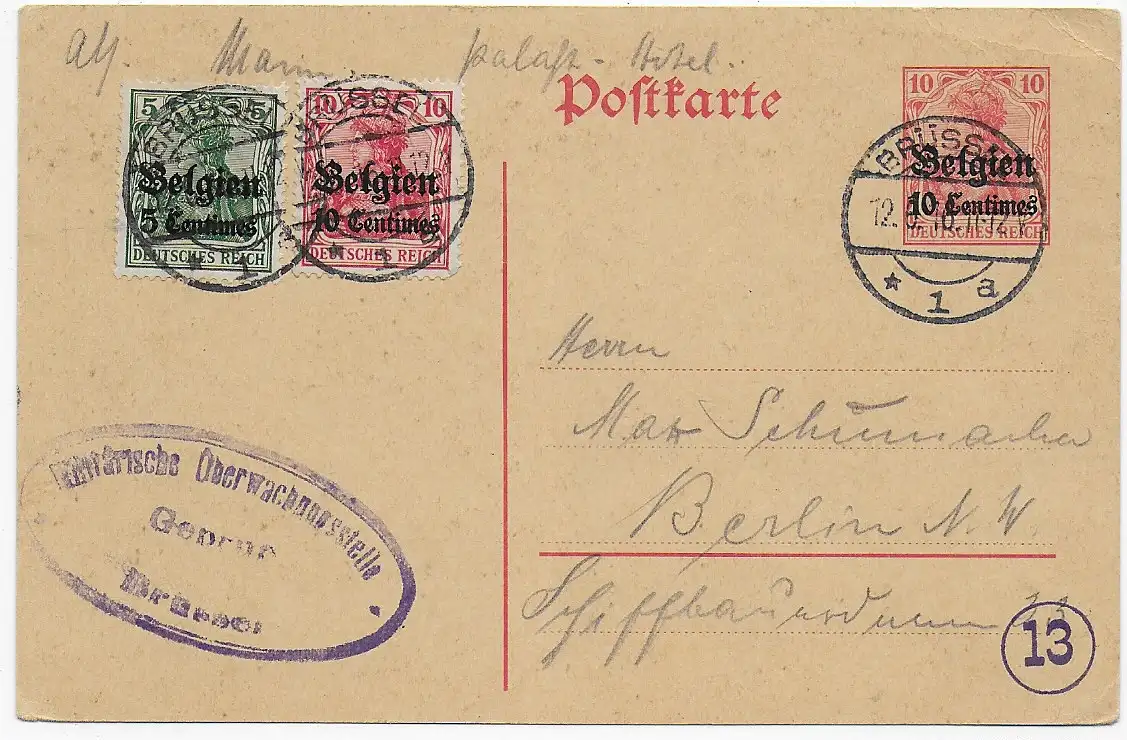 Palast-Hotel.
Postkarte
5 5
Belgien
5 Centimes
DEUTSCHES REICH
10 10
Belgien
10 Centimes
DEUTSCHES REICH
10 10
Belgien
10 Centimes
DEUTSCHES REICH
BRÜSSEL
* 1
BRÜSSEL
* 1
BRÜSSEL
12.
* 1 a
Herrn
Max Schumacher
Berlin N.W
Schiffbauerdamm
Militärische Überwachungsstelle
Geprüf
Brüssel
13